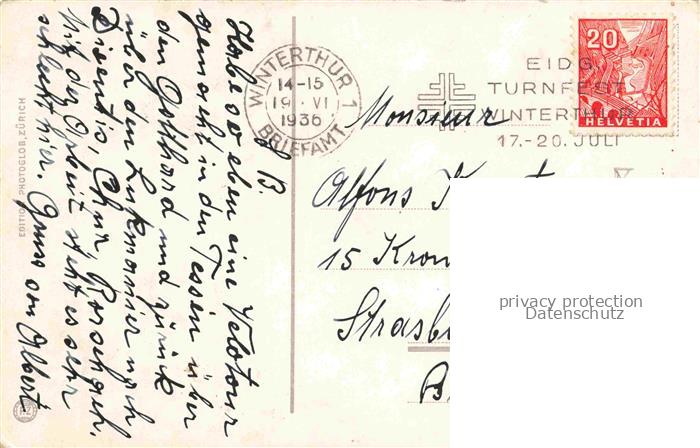 L. B.
Habe so eben eine Velotour
gemacht in den Tessin über
den Gotthard und zurück
über den Lukmanier nach
Disentis, Chur, Rorschach.
Mit der Arbeit steht es sehr
schlecht hier. Gruss von Albert
EDITION PHOTOGLOB, ZÜRICH
WINTERTHUR 1
14-15
19. VI
1936
BRIEFAMT
EIDG.
TURNFEST
WINTERTHUR
17.-20. JULI
20
HELVETIA
Monsieur
Alfons
15
privacy protection
Datenschutz